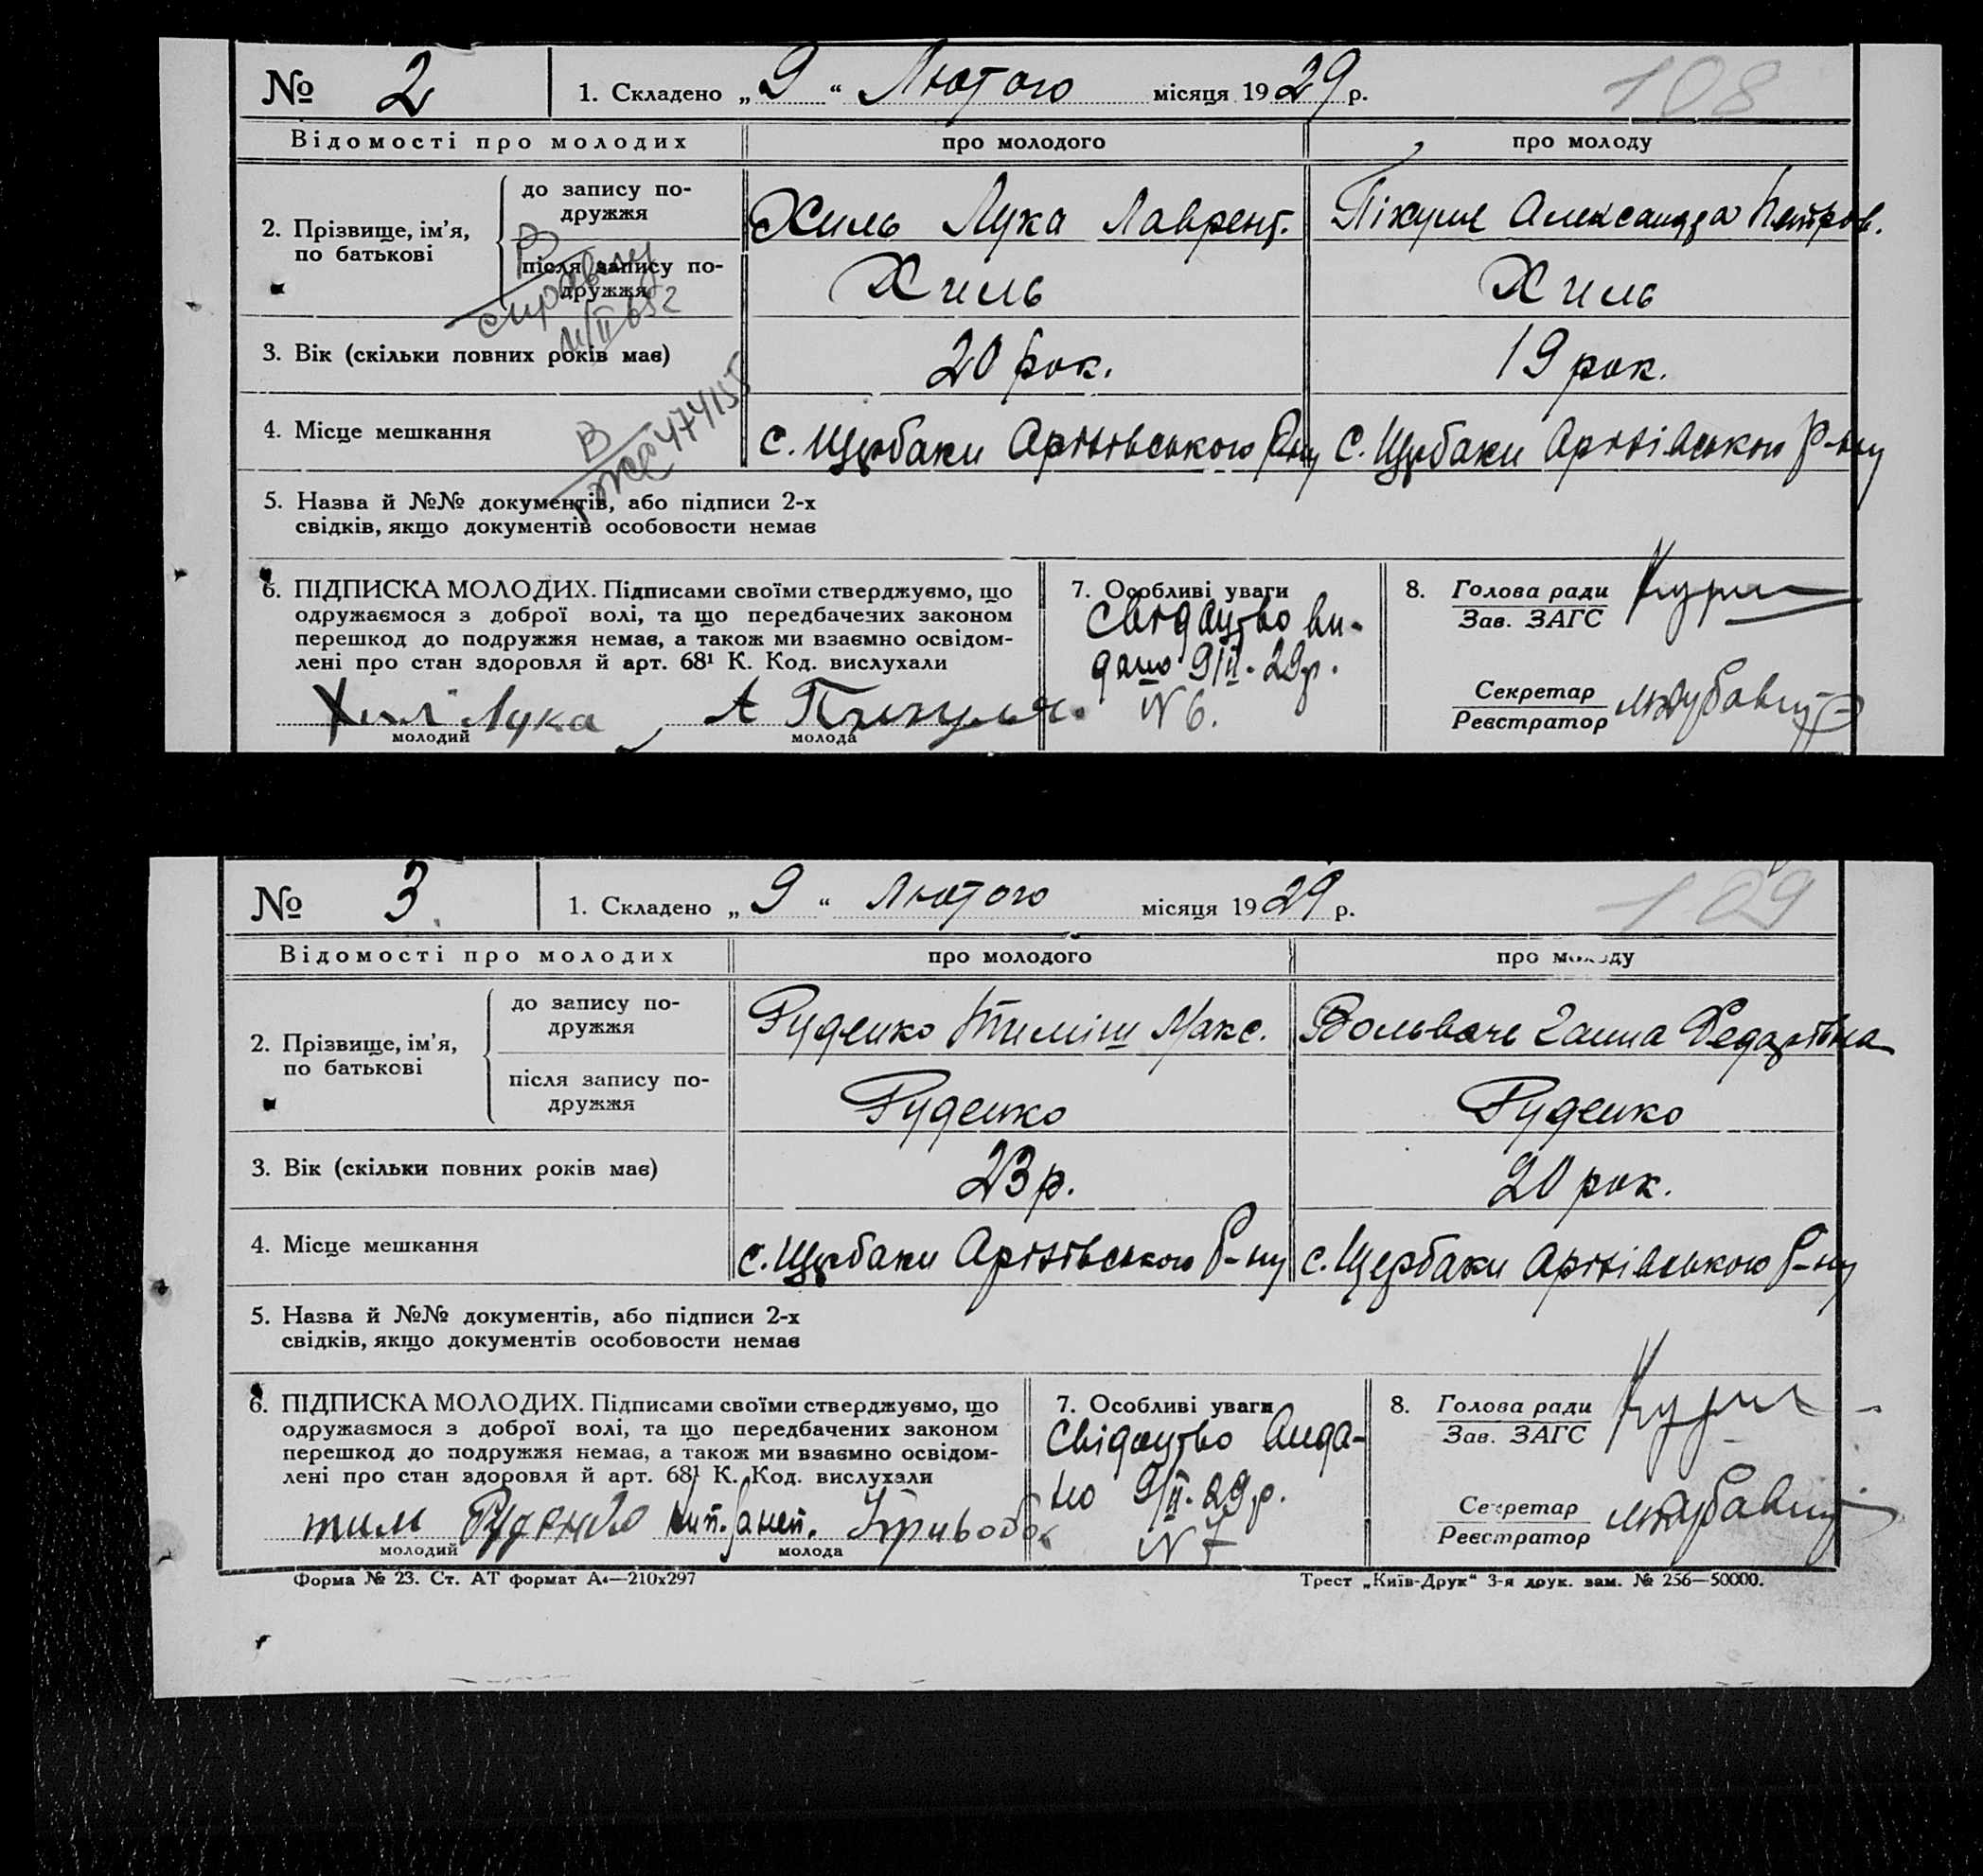 № 2 1. Складено „ 9 “ Лютого місяця 1929 р. 108
Відомості про молодих про молодого про молоду
2. Прізвище, ім’я, по батькові
до запису по-
дружжя
Хиль Лука Лаврент. Пікуль Александра Петров.
після запису по-
дружжя
Хиль Хиль
В справку
3. Вік (скільки повних років має) 20 рок. 19 рок.
4. Місце мешкання с. Щербаки Арtiвського Р-ну с. Щербаки Р-ну
474155
5. Назва й №№ документів, або підписи 2-х
свідків, якщо документів особовости немає
6. ПІДПИСКА МОЛОДИХ. Підписами своїми стверджуємо, що
одружаємося з доброї волі, та що передбачених законом
перешкод до подружжя немає, а також ми взаємно освідом-
лені про стан здоровля й арт. 68¹ К. Код. вислухали
Хилі Лука А Пикуля
молодий молода
7. Особливі уваги
Свідоцтво ви-
дано 9/II-29р.
N 6.
8. Голова ради
Зав. ЗАГС
Секретар
Реєстратор
№ 3. 1. Складено „ 9 “ Лютого місяця 1929 р. 109
Відомості про молодих про молодого про молоду
2. Прізвище, ім’я, по батькові
до запису по-
дружжя
Руденко Тиміш Макс. Вольвач Ганна Федорівна
після запису по-
дружжя
Руденко Руденко
3. Вік (скільки повних років має) 23 р. 20 рок.
4. Місце мешкання с. Щербаки Р-ну с. Щербаки Р-ну
5. Назва й №№ документів, або підписи 2-х
свідків, якщо документів особовости немає
6. ПІДПИСКА МОЛОДИХ. Підписами своїми стверджуємо, що
одружаємося з доброї волі, та що передбачених законом
перешкод до подружжя немає, а також ми взаємно освідом-
лені про стан здоровля й арт. 68¹ К. Код. вислухали
тим Руденко
молодий молода
7. Особливі уваги
Свідоцтво вида-
но 9/II-29р.
N 7
8. Голова ради
Зав. ЗАГС
Секретар
Реєстратор
Форма № 23. Ст. АТ формат А4—210х297 Трест „Київ-Друк“ 3-я друк. зам. № 256—50000.